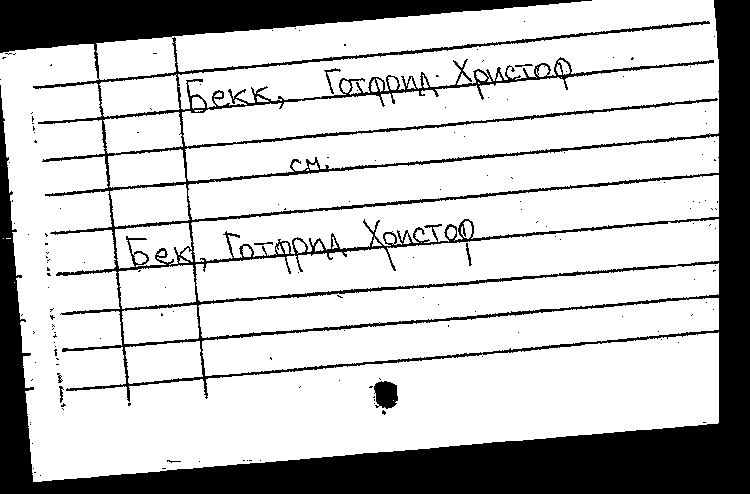 Бекк, Готфрид Христоф
см.
Бек, Готфрид Христоф